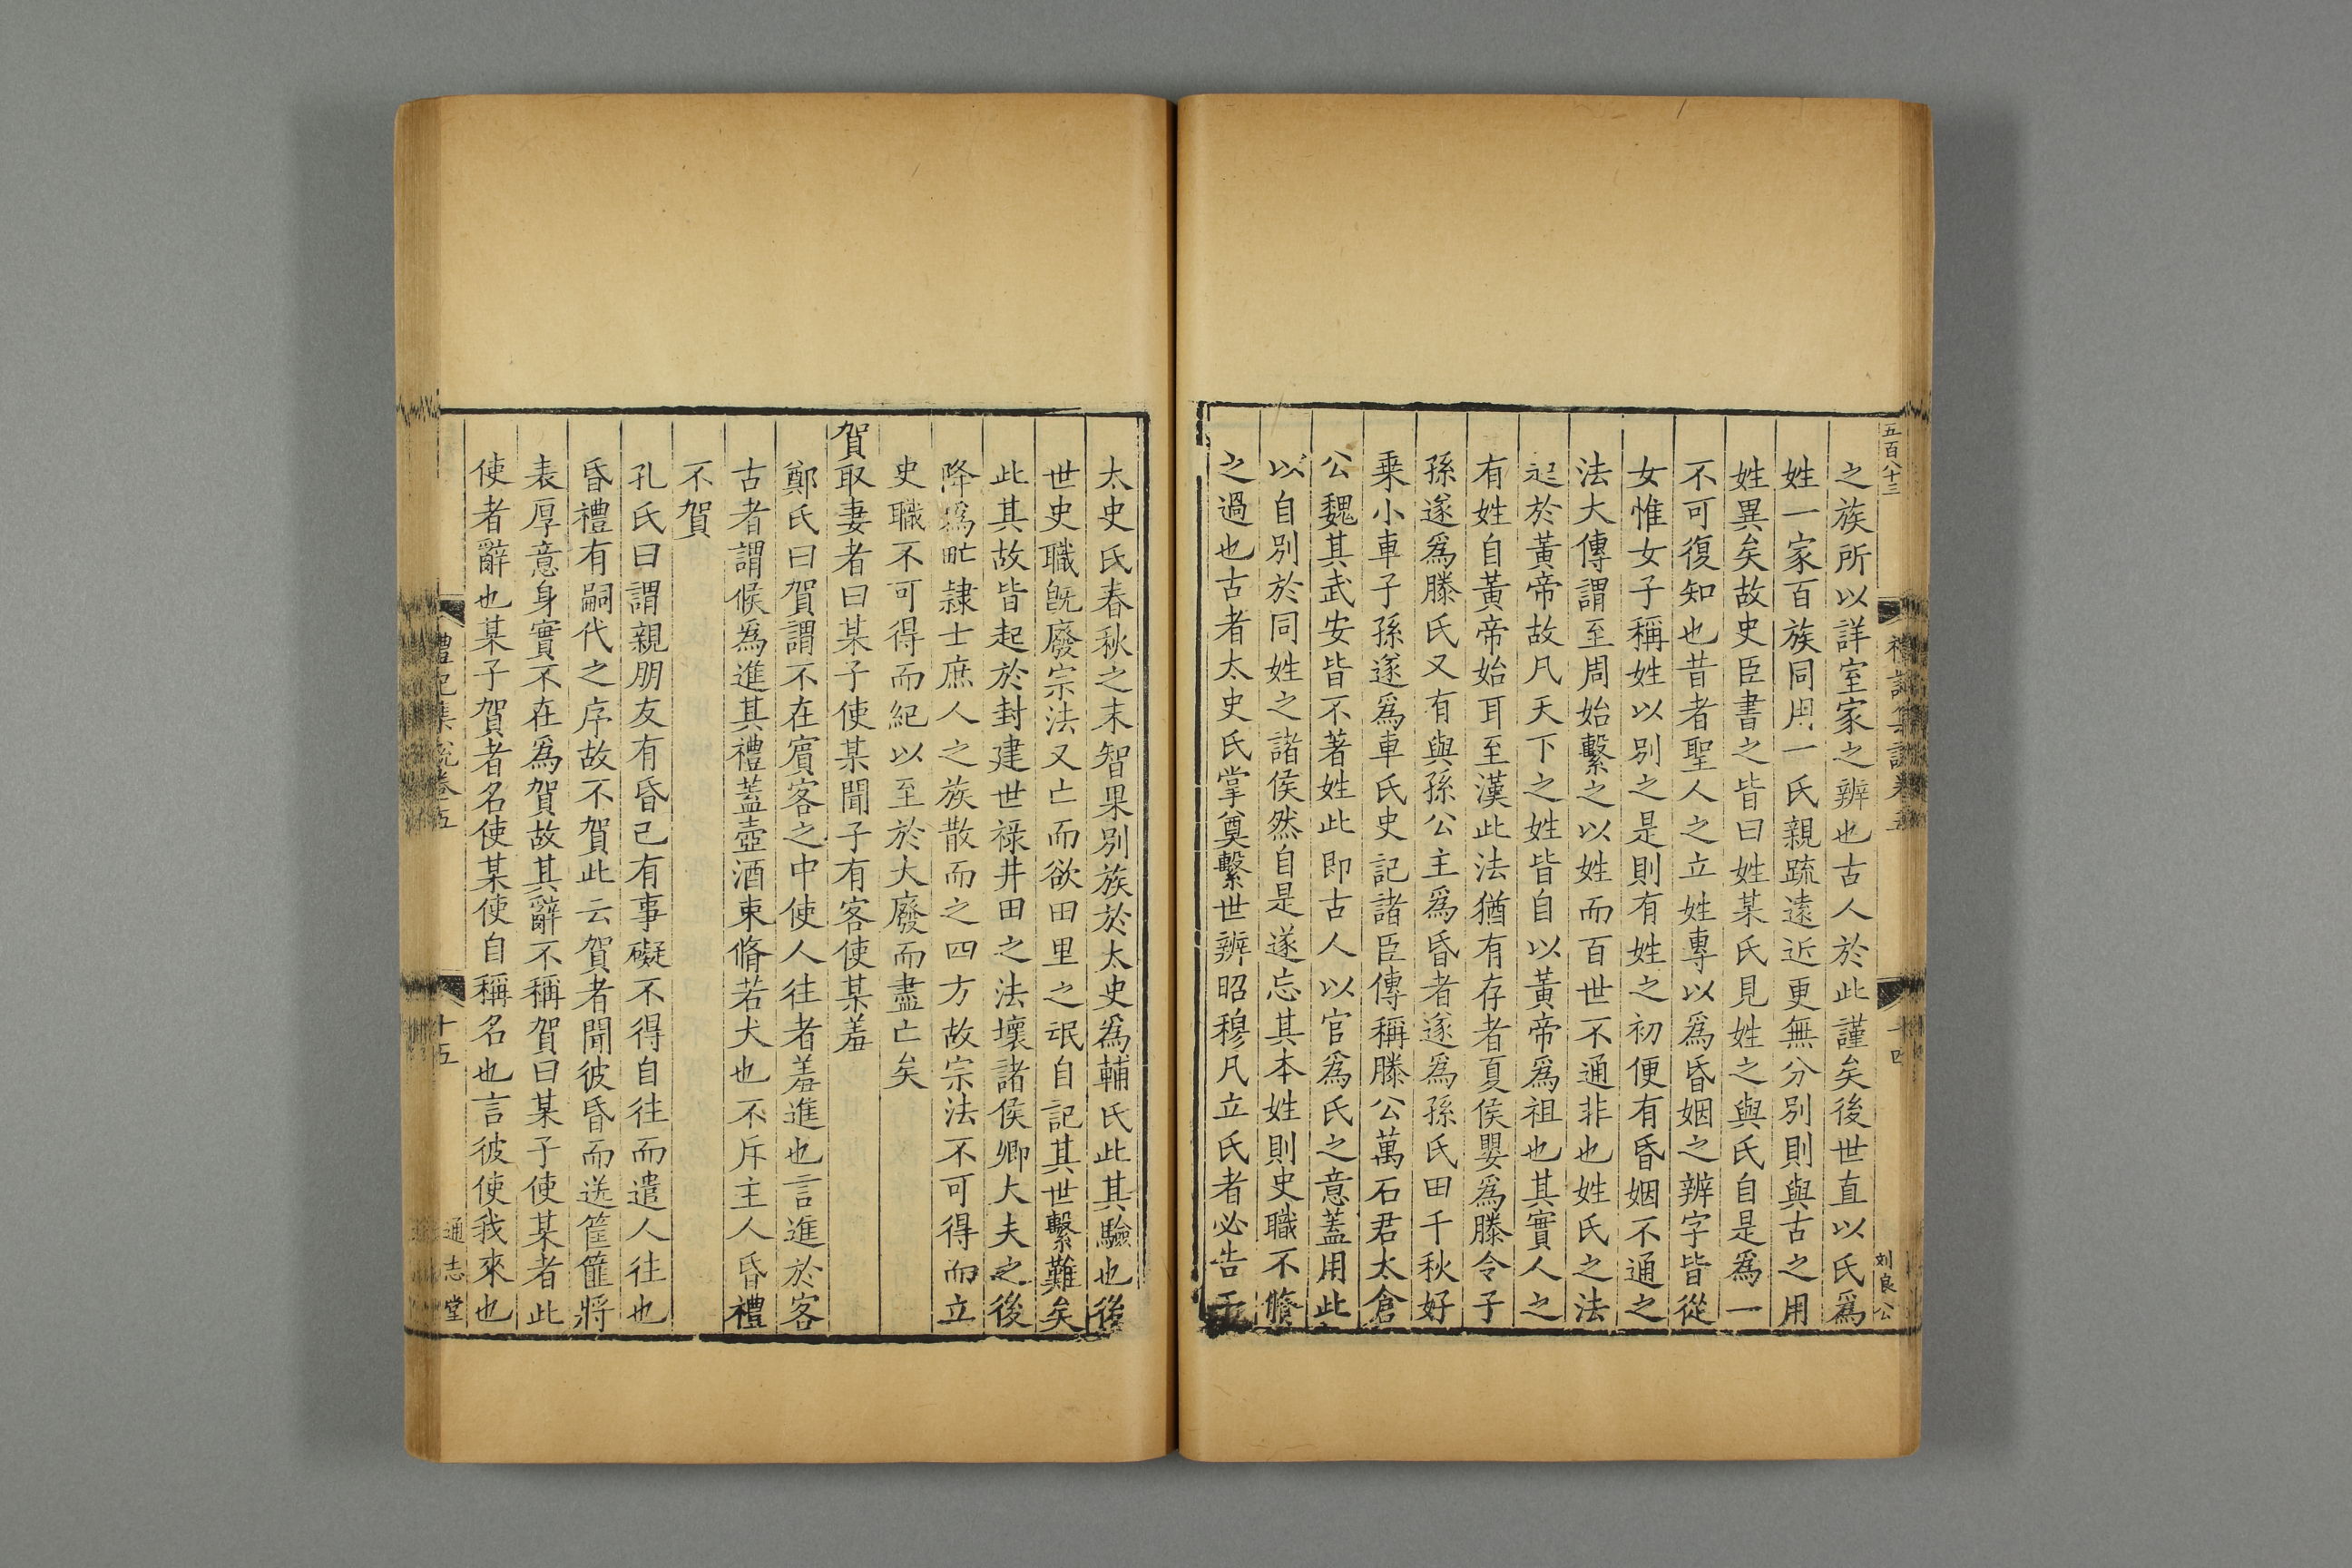 五百八十三
之族所以詳室家之辨也古人於此謹矣後世直以氏爲
姓一家百族同用一氏親疏遠近更無分別則與古之用
姓異矣故史臣書之皆曰姓某氏見姓之與氏自是爲一
不可復知也昔者聖人之立姓專以爲昏姻之辨字皆從
女惟女子稱姓以別之是則有姓之初便有昏姻不通之
法大傳謂至周始繫之以姓而百世不通非也姓氏之法
起於黃帝故凡天下之姓皆自以黃帝爲祖也其實人之
有姓自黃帝始耳至漢此法猶有存者夏侯嬰爲滕令子
孫遂爲滕氏又有與孫公主爲昏者遂爲孫氏田千秋好
乗小車子孫遂爲車氏史記諸臣傳稱滕公萬石君太倉
公魏其武安皆不著姓此即古人以官爲氏之意蓋用此
以自別於同姓之諸侯然自是遂忘其本姓則史職不脩
之過也古者太史氏掌奠繫世辨昭穆凡立氏者必告
禮記集說卷五
十四
刘良公
太史氏春秋之末智果別族於太史爲輔氏此其驗也後
世史職旣廢宗法又亡而欲田里之氓自記其世繫難矣
此其故皆起於封建世祿井田之法壞諸侯卿大夫之後
降爲甿隷士庶人之族散而之四方故宗法不可得而立
史職不可得而紀以至於大廢而盡亡矣
賀取妻者曰某子使某聞子有客使某羞
鄭氏曰賀謂不在賓客之中使人往者羞進也言進於客
古者謂候爲進其禮蓋壺酒束脩若犬也不斥主人昏禮
不賀
孔氏曰謂親朋友有昏己有事礙不得自往而遣人往也
昏禮有嗣代之序故不賀此云賀者聞彼昏而送筐篚將
表厚意身實不在爲賀故其辭不稱賀曰某子使某者此
使者辭也某子賀者名使某使自稱名也言彼使我來也
禮記集說卷五
十五
通志堂